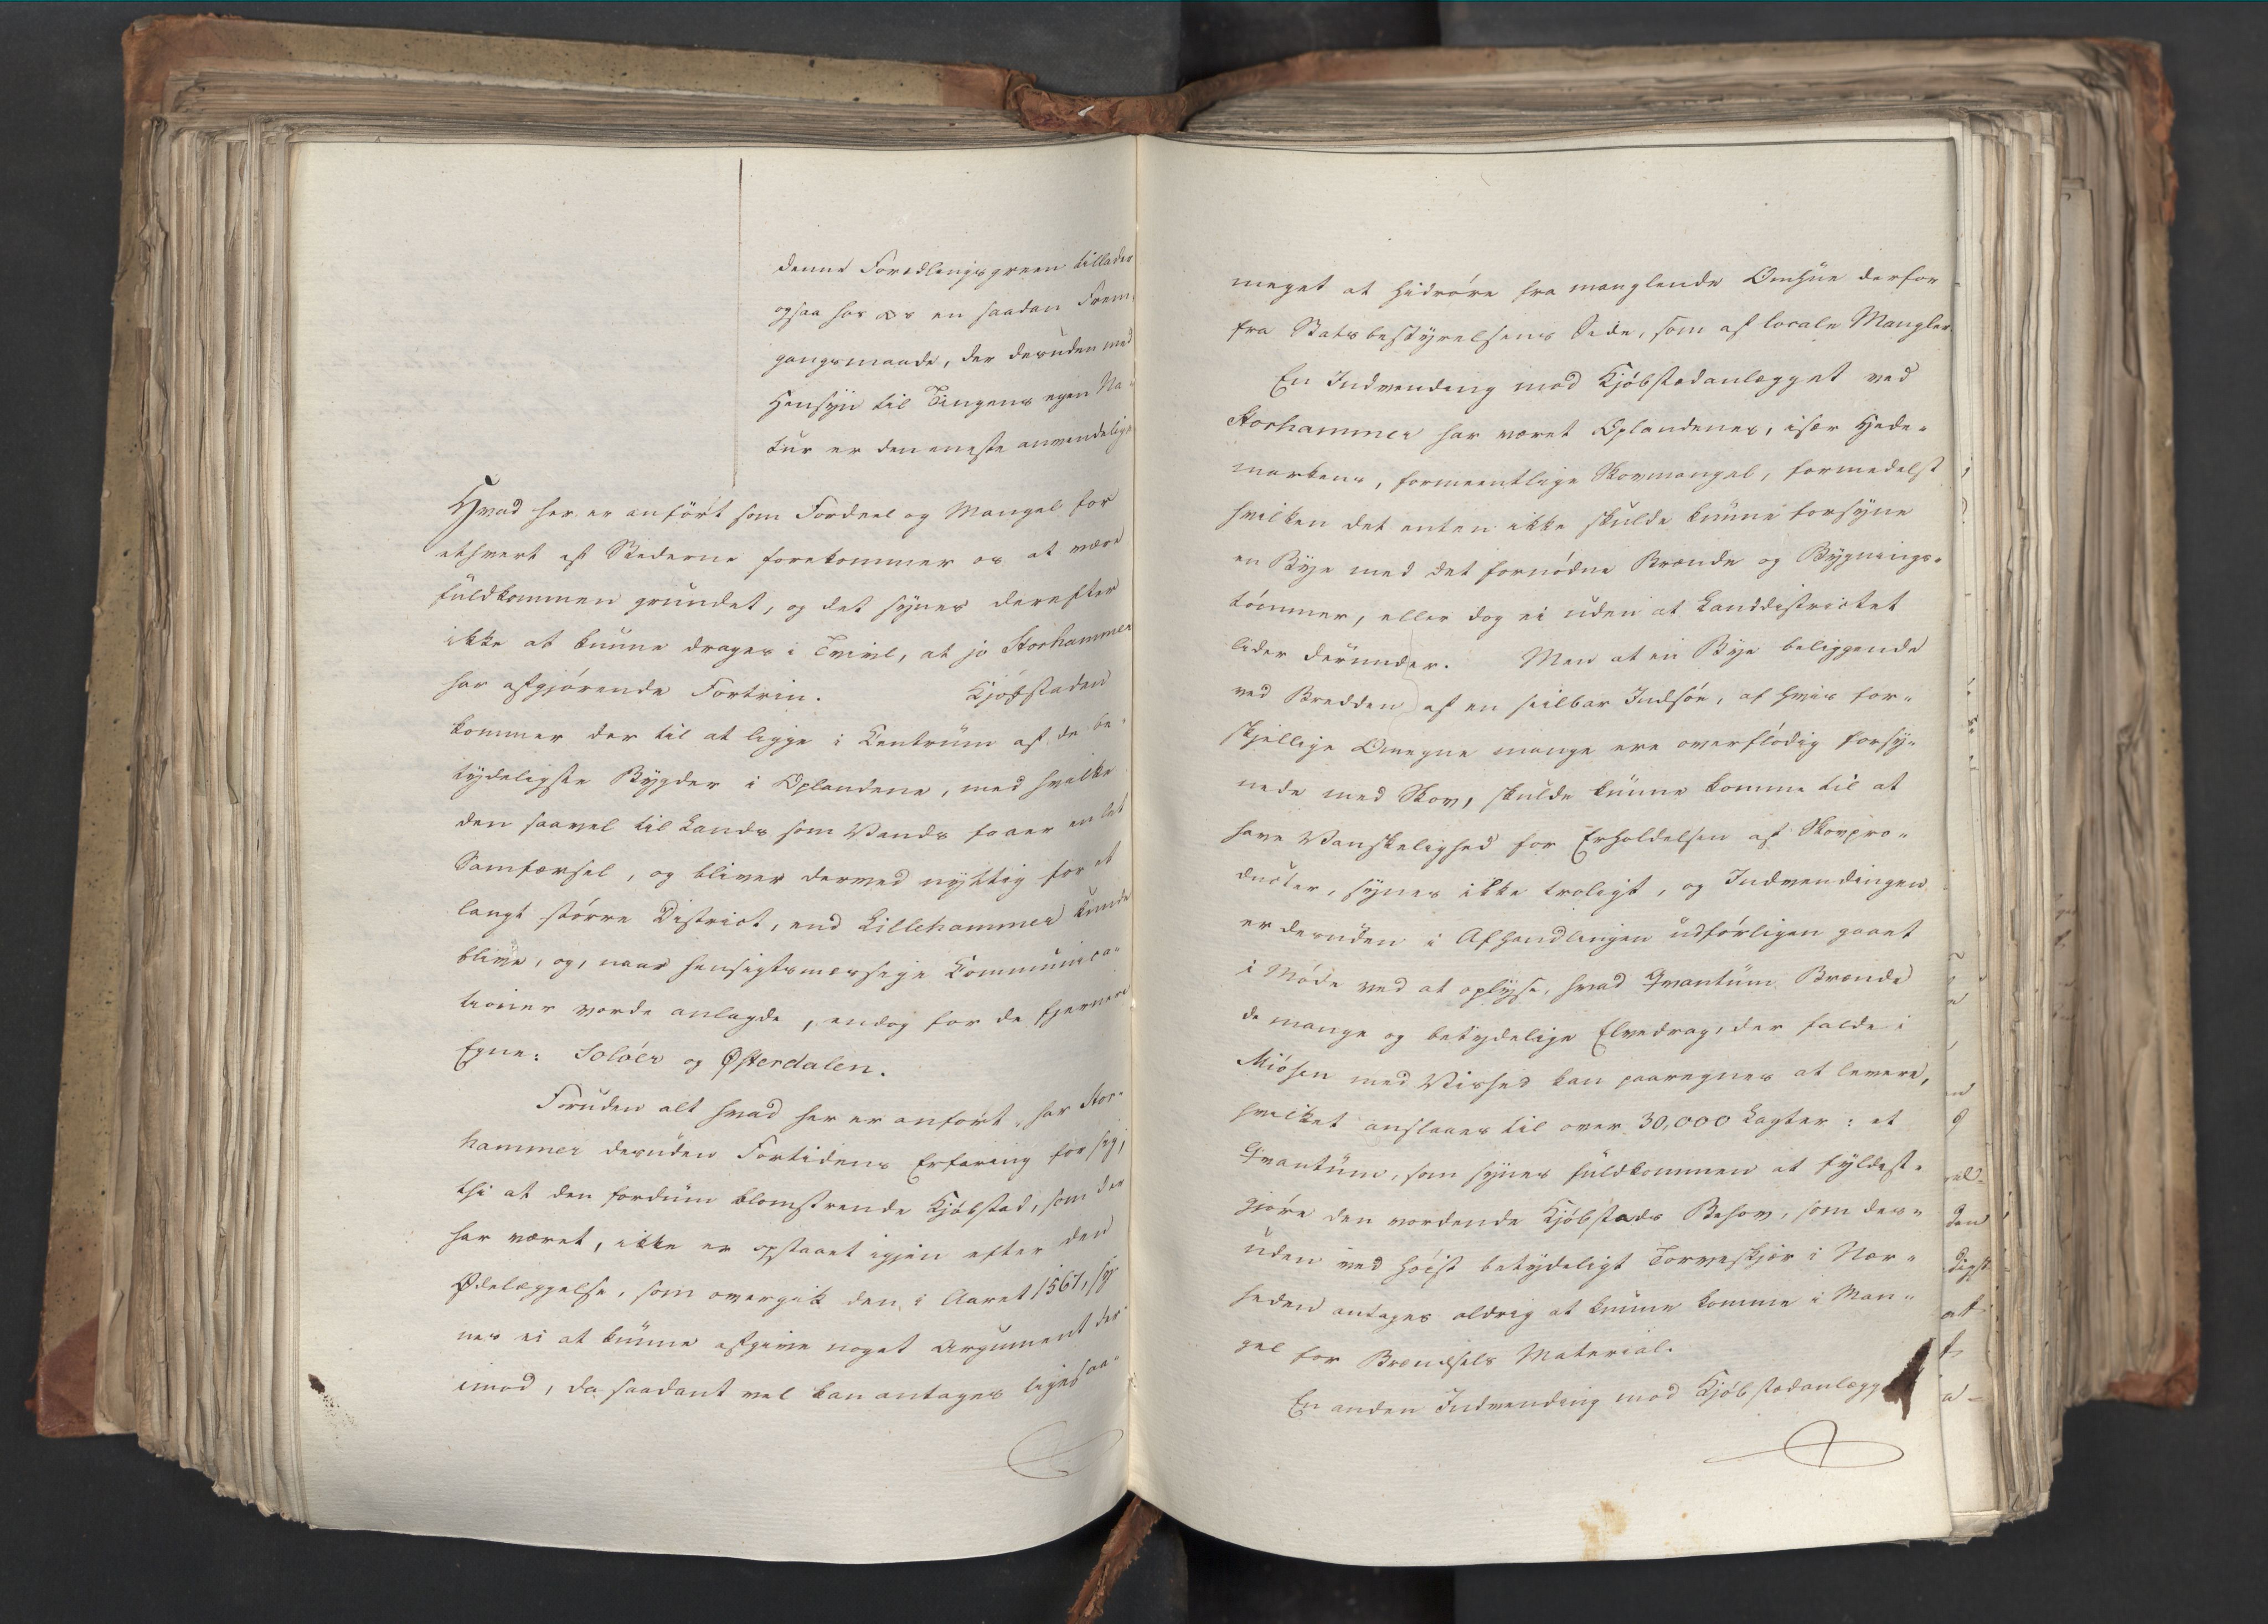 denne Forædlingsgreen tillader
ogsaa hos os en saadan Frem-
gangsmaade, der desuden med
Hensyn til Tingens egen Na-
tur er den eneste anvendelige
Hvad her er anført som Fordeel og Mangel for
ethvert af Stederne forekommer os at være
fuldkommen grundet, og det synes derefter
ikke at kunne drages i Tvivl, at jo Storhammer
har afgjørende Fortrin. Kjøbstaden
kommer der til at ligge i Centrum af de be-
tydeligste Bygder i Oplandene, med hvilke
den saavel til Lands som Vands faaer en let
Samfærsel, og bliver derved nyttig for et
langt større District, end Lillehammer kunde
blive, og, naar hensigtsmæssige Communica-
tioner vorde anlagde, endog for de fjernere
Egne: Soløer og Østerdalen.
Foruden alt hvad her er anført, har Stor-
hammer desuden Fortidens Erfaring for sig;
thi at den fordum blomstrende Kjøbstad, som der
har været, ikke er opstaaet igjen efter den
Ødelæggelse, som overgik den i Aaret 1567, sy-
nes ei at kunne afgive noget Argument der-
imod, da saadant vel kan antages ligesaa-
meget at hidrøre fra manglende Omhue derfor
fra Statsbestyrelsens Side, som af locale Mangler.
En Indvending mod Kjøbstadanlægget ved
Storhammer har været Oplandenes, især Hede-
markens, formeentlige Skovmangel, formedelst
hvilken det enten ikke skulde kunne forsyne
en Bye med det fornødne Brænde og Bygnings-
tømmer, eller dog ei uden at Landdistrictet
lider derunder. Men at en Bye beliggende
ved Bredden af en seilbar Indsøe, af hvis for-
skjellige Omegne mange ere overflødig forsy-
nede med Skov, skulde kunne komme til at
have Vanskelighed for Erholdelsen af Skovpro-
ducter, synes ikke troligt, og Indvendingen
er desuden i Afhandlingen udførligen gaaet
i Møde ved at oplyse, hvad Qvantum Brænde
de mange og betydelige Elvedrag, der falde i
Miøsen med Vished kan paaregnes at levere,
hvilket anslaaes til over 30,000 Lagter: et
Qvantum, som synes fuldkommen at fyldest-
gjøre den vordende Kjøbstads Behov, som des-
uden ved høist betydeligt Torveskjær i Nær-
heden antages aldrig at kunne komme i Man-
gel for Brændsels Material.
En anden Indvending mod Kjøbstadanlægg